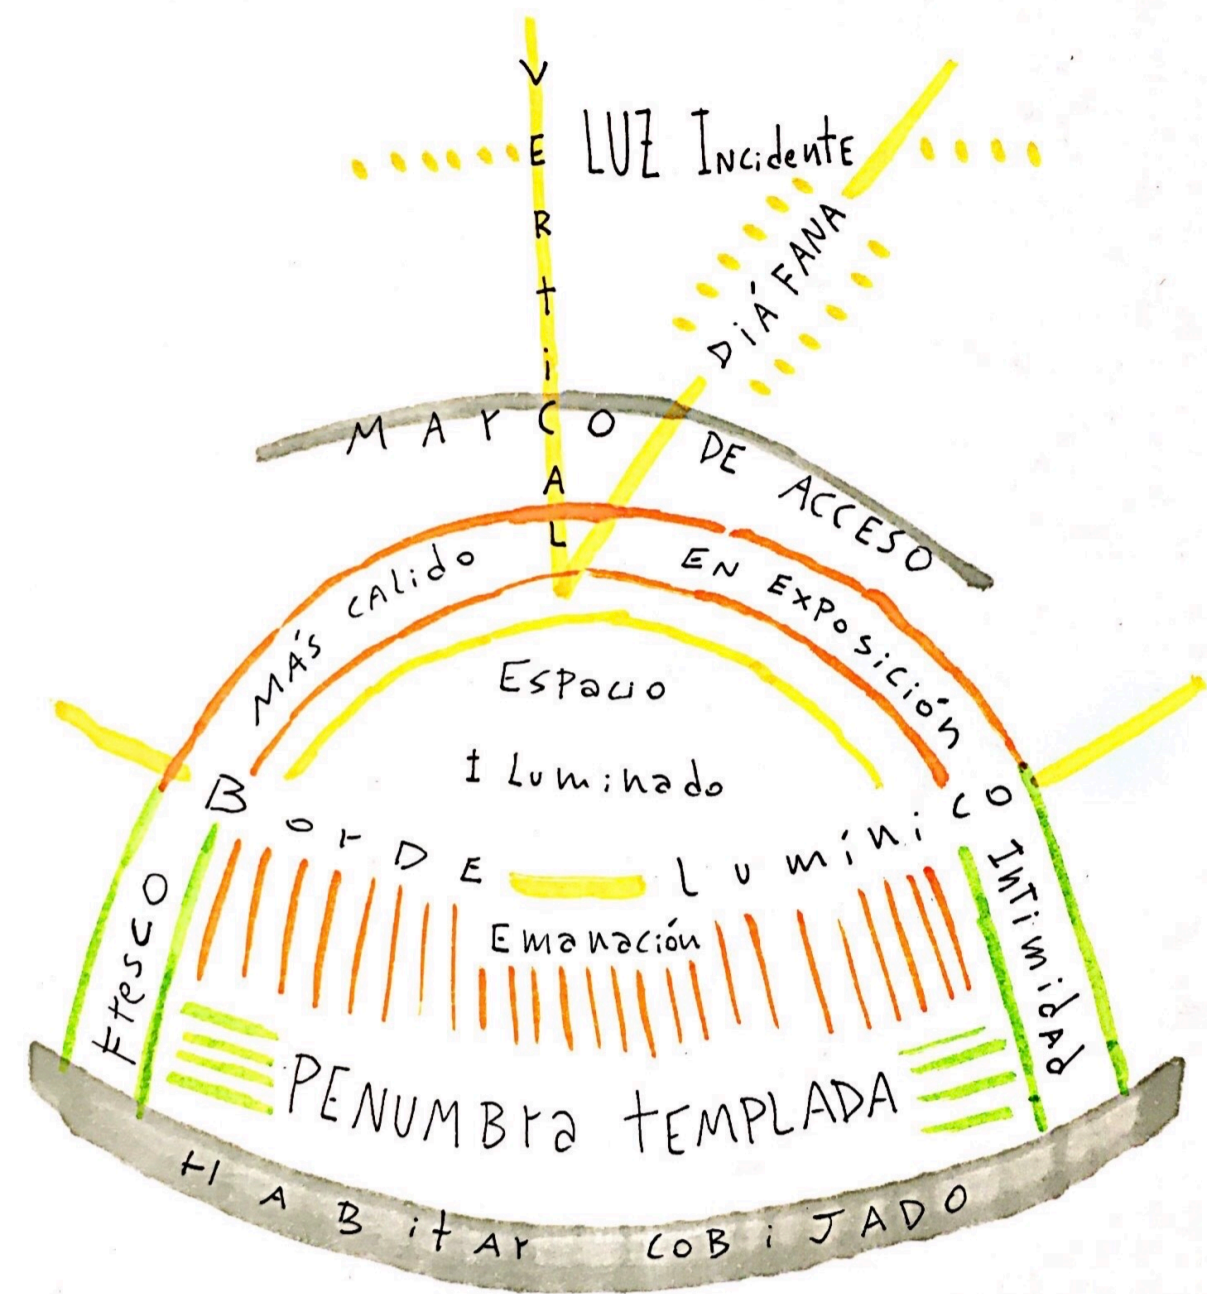 VERtiCAL
LUZ INcidentE
DiÁFANA
MArCO DE ACCESO
MÁS CALido
EN EXPosición
Espacio
ILuminado
BorDE Lumínico
Emanación
Fresco
IntimidAd
PENUMBra tEMPLADA
HABitAr COBiJADO